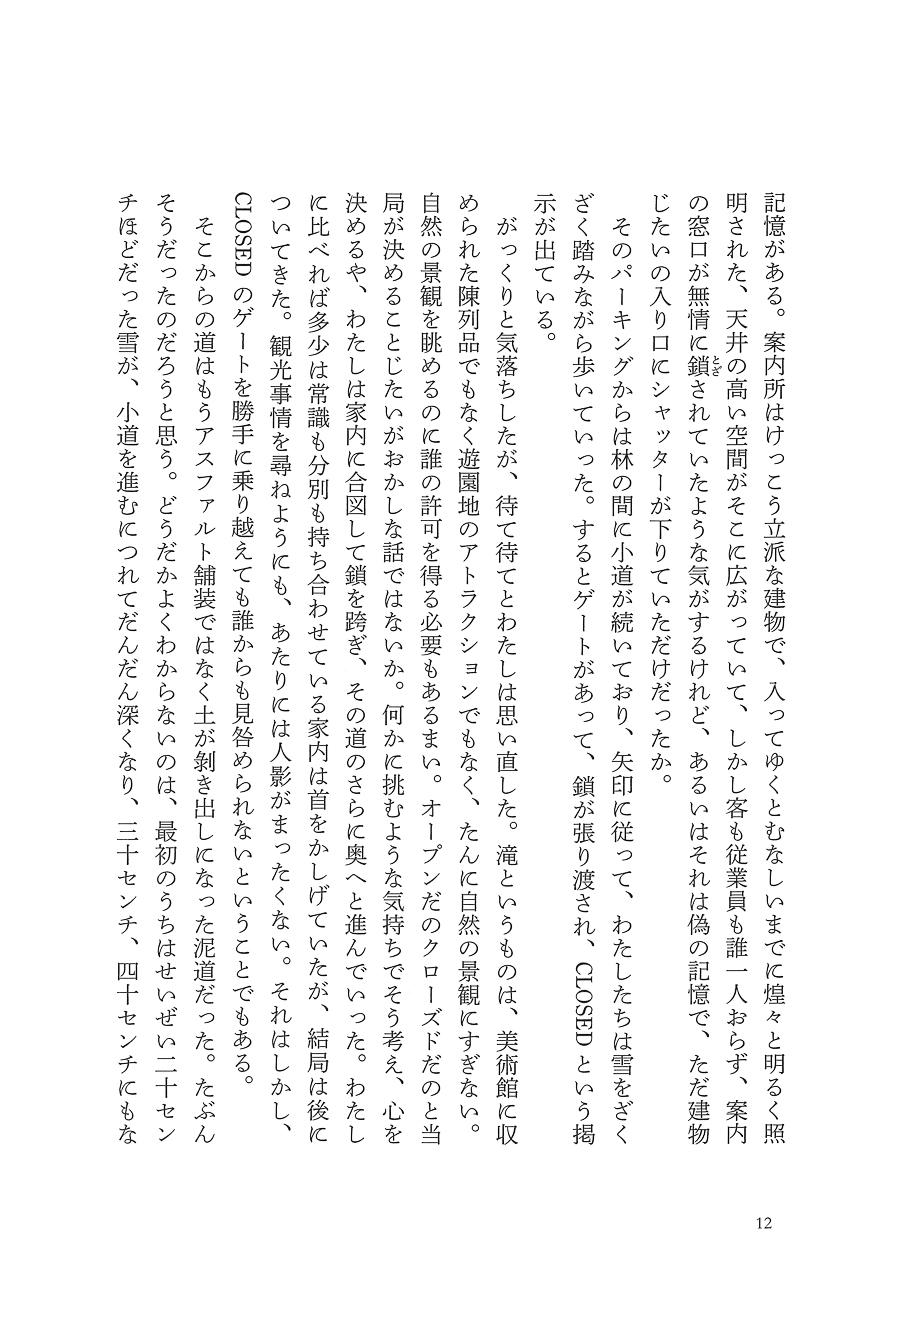 記憶がある。案内所はけっこう立派な建物で、入ってゆくとむなしいまでに煌々と明るく照
明された、天井の高い空間がそこに広がっていて、しかし客も従業員も誰一人おらず、案内
の窓口が無情に鎖とざされていたような気がするけれど、あるいはそれは偽の記憶で、ただ建物
じたいの入り口にシャッターが下りていただけだったか。
　そのパーキングからは林の間に小道が続いており、矢印に従って、わたしたちは雪をざく
ざく踏みながら歩いていった。するとゲートがあって、鎖が張り渡され、CLOSED という掲
示が出ている。
　がっくりと気落ちしたが、待て待てとわたしは思い直した。滝というものは、美術館に収
められた陳列品でもなく遊園地のアトラクションでもなく、たんに自然の景観にすぎない。
自然の景観を眺めるのに誰の許可を得る必要もあるまい。オープンだのクローズドだのと当
局が決めることじたいがおかしな話ではないか。何かに挑むような気持ちでそう考え、心を
決めるや、わたしは家内に合図して鎖を跨ぎ、その道のさらに奥へと進んでいった。わたし
に比べれば多少は常識も分別も持ち合わせている家内は首をかしげていたが、結局は後に
ついてきた。観光事情を尋ねようにも、あたりには人影がまったくない。それはしかし、
CLOSED のゲートを勝手に乗り越えても誰からも見咎められないということでもある。
　そこからの道はもうアスファルト舗装ではなく土が剝き出しになった泥道だった。たぶん
そうだったのだろうと思う。どうだかよくわからないのは、最初のうちはせいぜい二十セン
チほどだった雪が、小道を進むにつれてだんだん深くなり、三十センチ、四十センチにもな
12